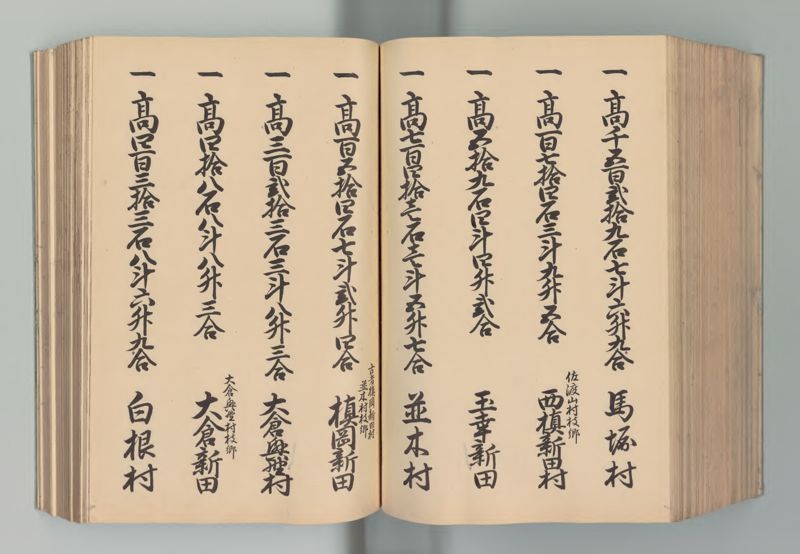 一 髙千五百弐拾九石七斗六升九合 馬堀村
一 髙百七拾四石三斗九升五合
佐渡山村枝郷
西槙新田村
一 髙五拾九石四斗四升弐合 玉 新田
一 髙七百四拾壱石壱斗五升七合 並木村
一 髙百五拾四石七斗弐升四合
古者槙岡新田村
並木村枝郷
槙岡新田
一 髙三百弐拾三石三斗八升三合 大倉興野村
一 髙四拾八石八斗八升三合
大倉興野村枝郷
大倉新田
一 髙四百三拾三石八斗六升九合 白根村